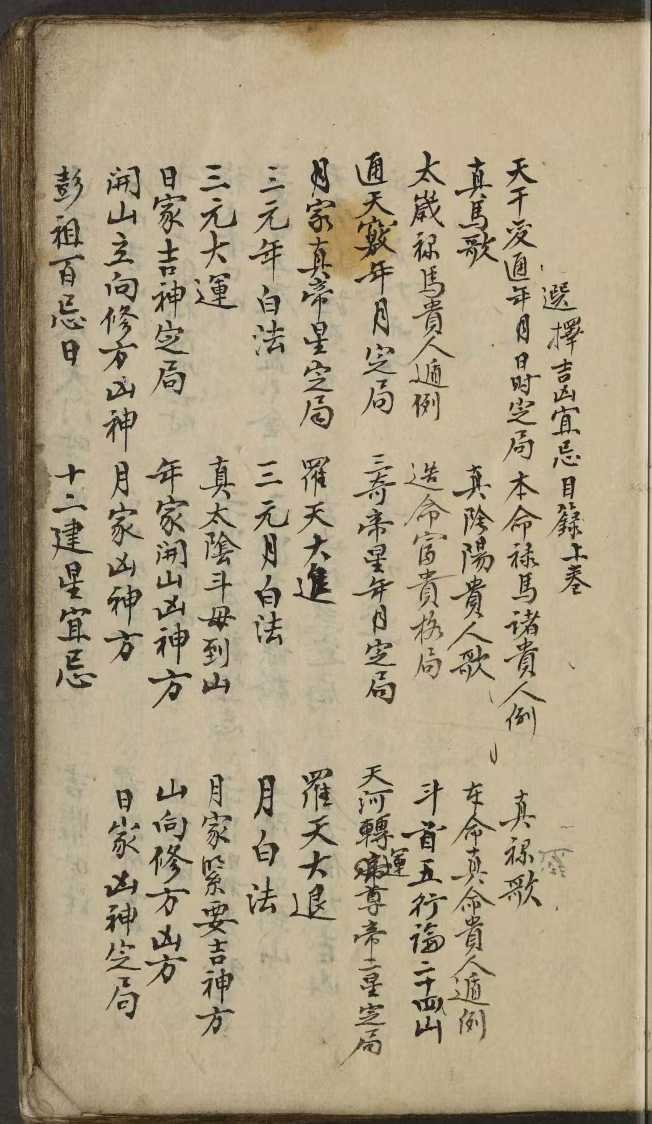 選擇吉凶宜忌目錄上卷
天干愛通年月日时定局 本命禄馬诸貴人例 真禄歌
真馬歌 真陰陽貴人歌 本命真命貴人遁例
太歲禄馬貴人遁例 造命富貴格局 斗首五行論二十四山
通天竅年月定局 三奇帝星年月定局 天河轉運尊帝二星定局
月家真帝星定局 羅天大進 羅天大退
三元年白法 三元月白法 月白法
三元大運 真太陰斗母到山 月家緊要吉神方
日家吉神定局 年家開山凶神方 山向修方凶方
開山立向修方凶神 月家凶神方 日家凶神定局
彭祖百忌日 十二建星宜忌